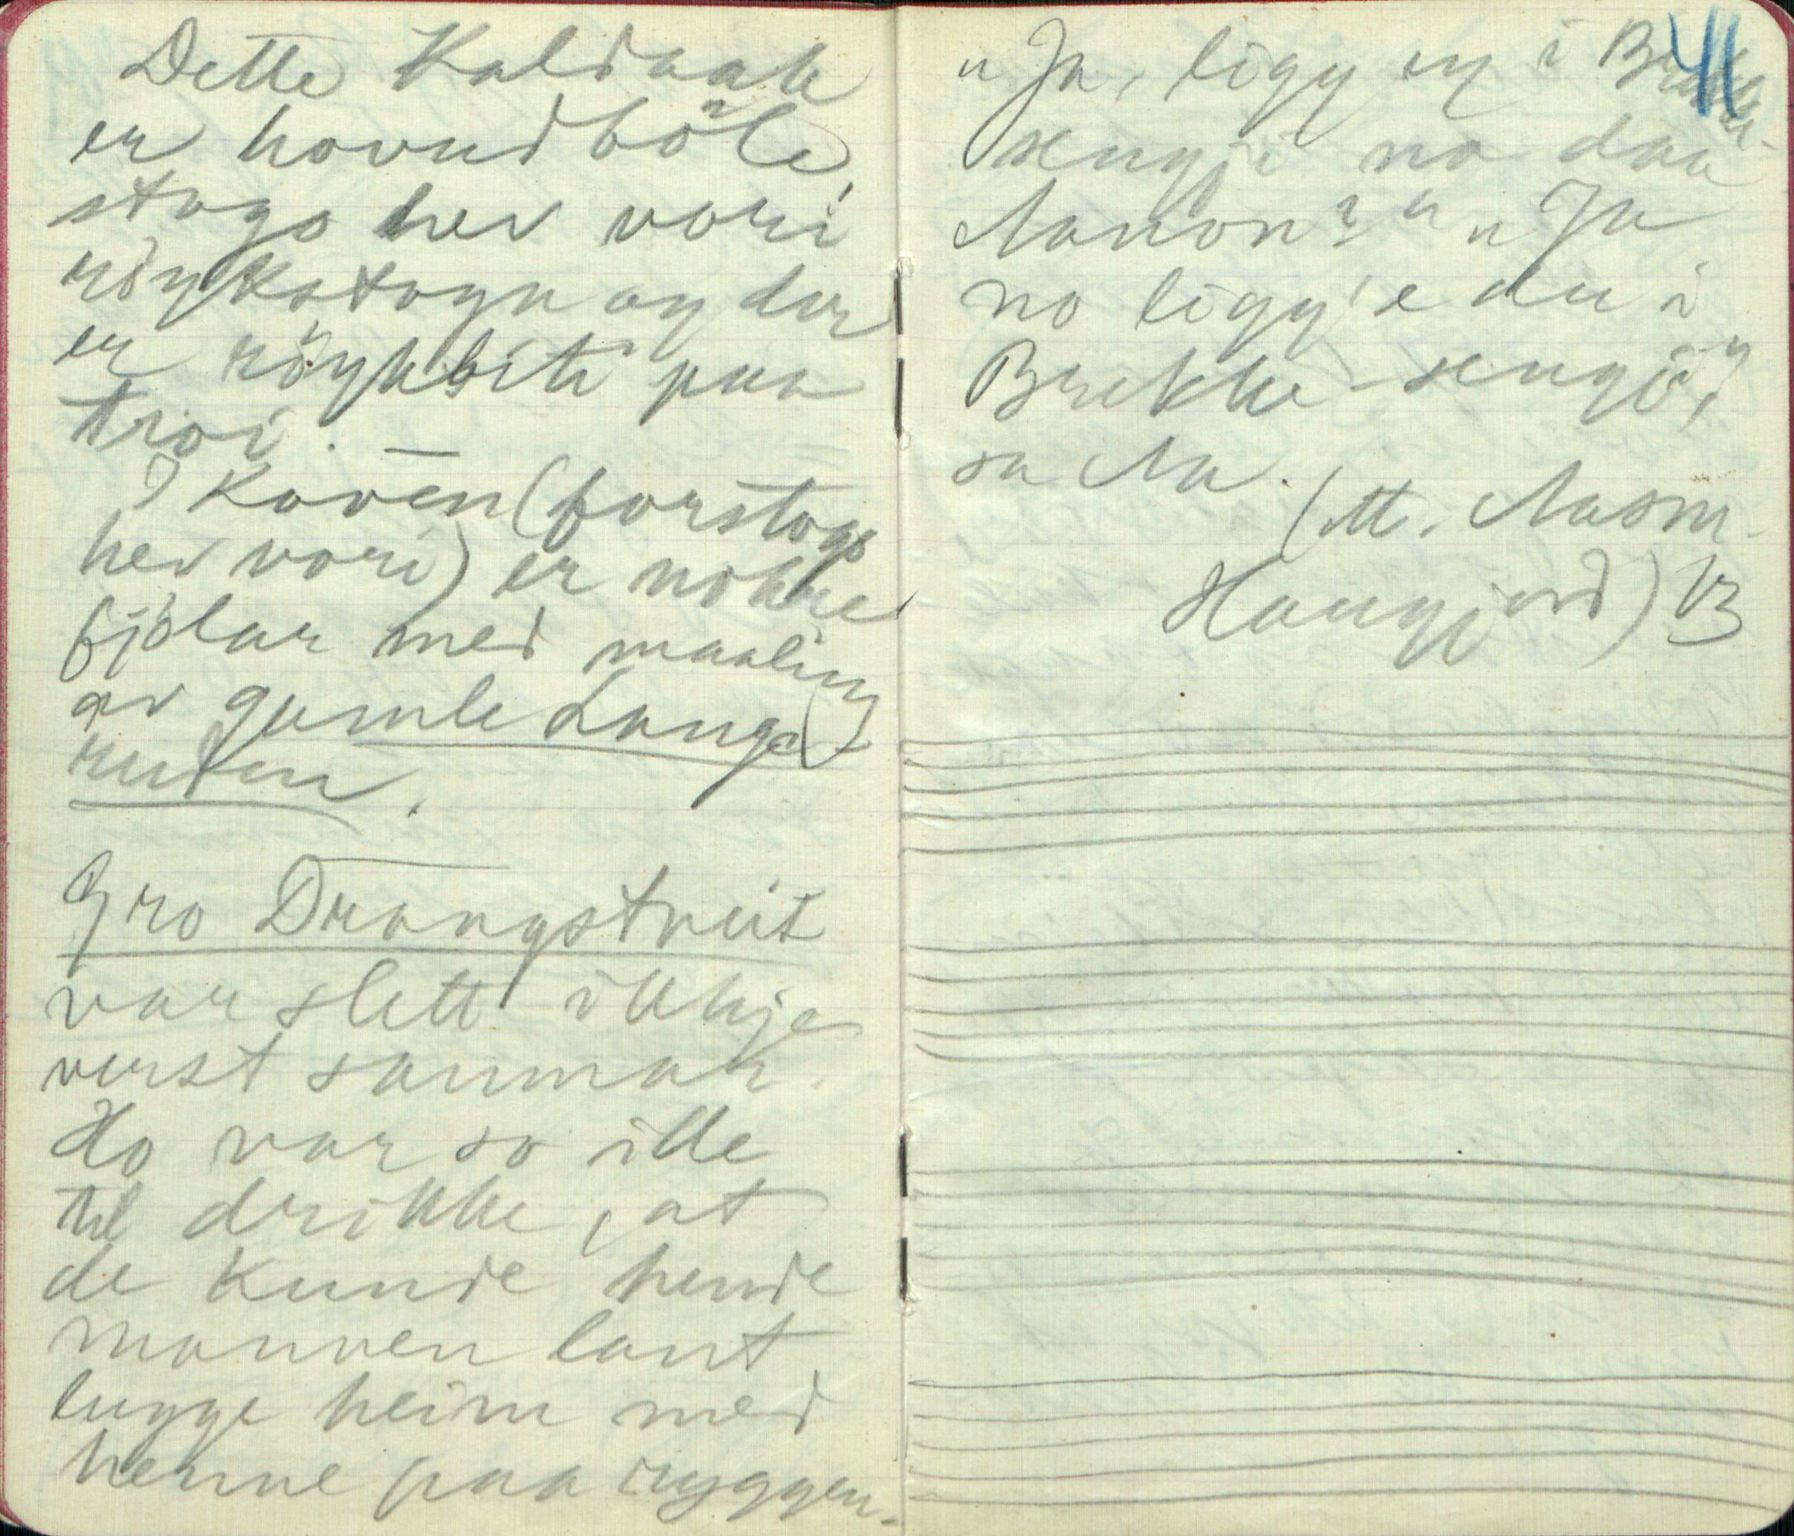 Dette Kaldaak
er hovudböle,
stogo hev vori
röykstogu og der
er röykbite paa
troi. —
I Koven (forstogo
hev vori) er nokre
fjölar med maaling
av gamle Lange-
ruden.
Gro Drangstveit
var slett ikkje
verst saumar.
Ho var so ille
til drikke, at
de kunde hende
mannen laut
lugge heim med
henne paa ryggen.
41
"Ja, ligg eg i Brekke-
sengji no daa
Aanon?" "Ja
no ligg'e du i
Brekke-sengji,"
sa Aa.
(M. Aasm.
Haugjord) 13